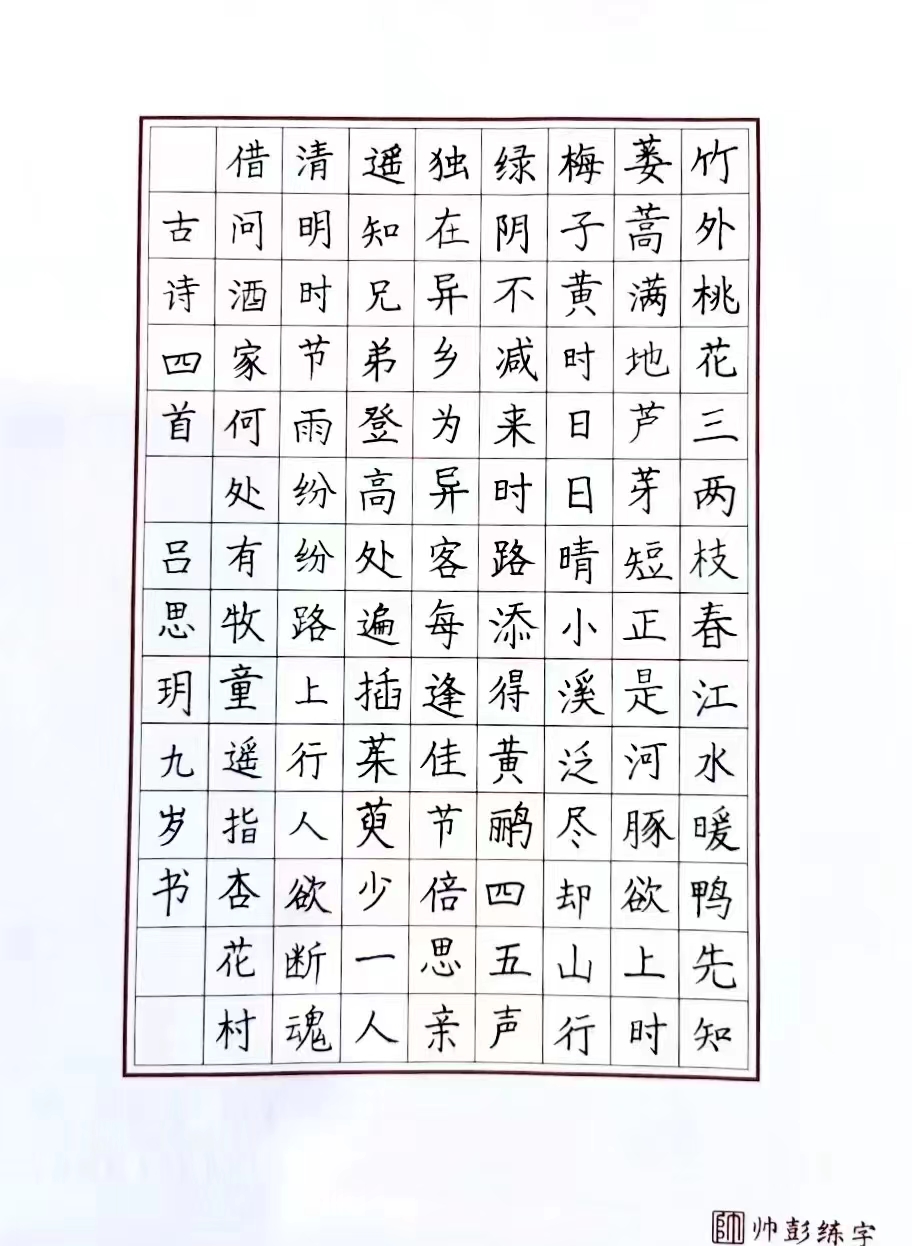 竹外桃花三两枝春江水暖鸭先知
蒌蒿满地芦芽短正是河豚欲上时
梅子黄时日日晴小溪泛尽却山行
绿阴不减来时路添得黄鹂四五声
独在异乡为异客每逢佳节倍思亲
遥知兄弟登高处遍插茱萸少一人
清明时节雨纷纷路上行人欲断魂
借问酒家何处有牧童遥指杏花村
古诗四首 吕思玥九岁书
帅彭练字